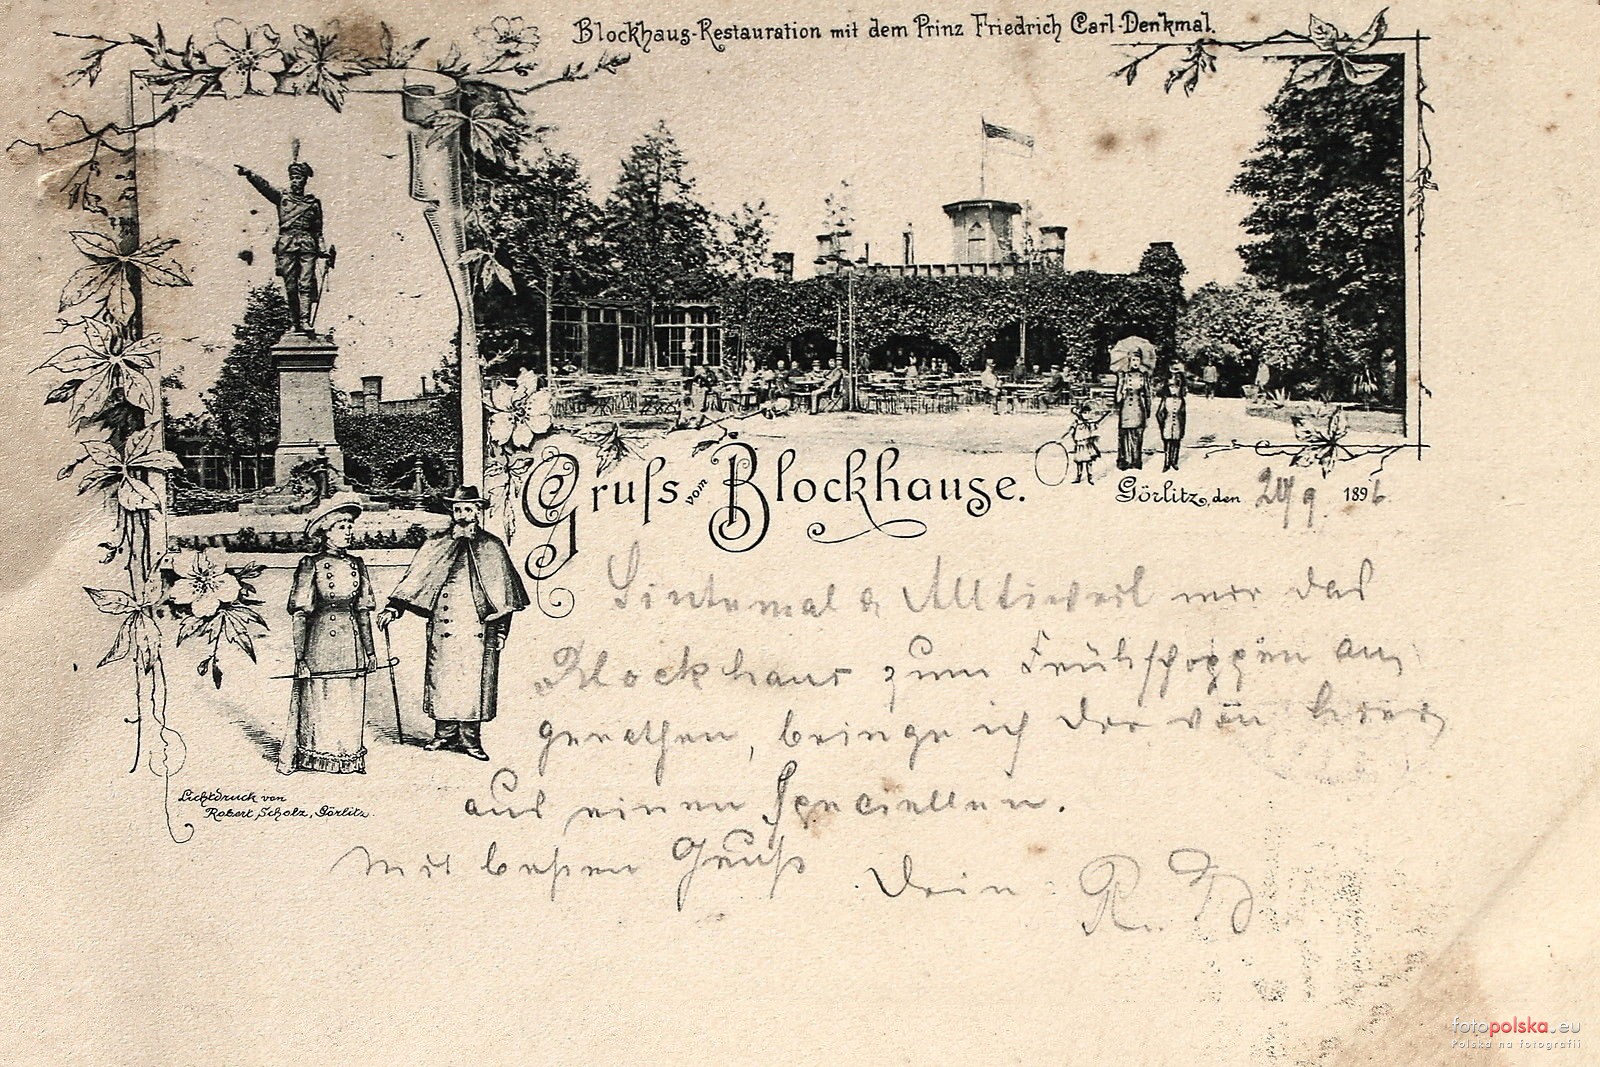 Blockhaus-Restauration mit dem Prinz Friedrich Carl-Denkmal.
Gruſs vom Blockhause.
Görlitz, den 189
Sintemal & Alltieweil mir das
Blockhaus zum Frühschoppen an
gerathen, bringe ich Dir von hier
aus einen Speciellen.
Mit besten Gruß
Dein R.
Lichtdruck von
Robert Scholz, Görlitz.
fotopolska.eu
Polska na fotografii